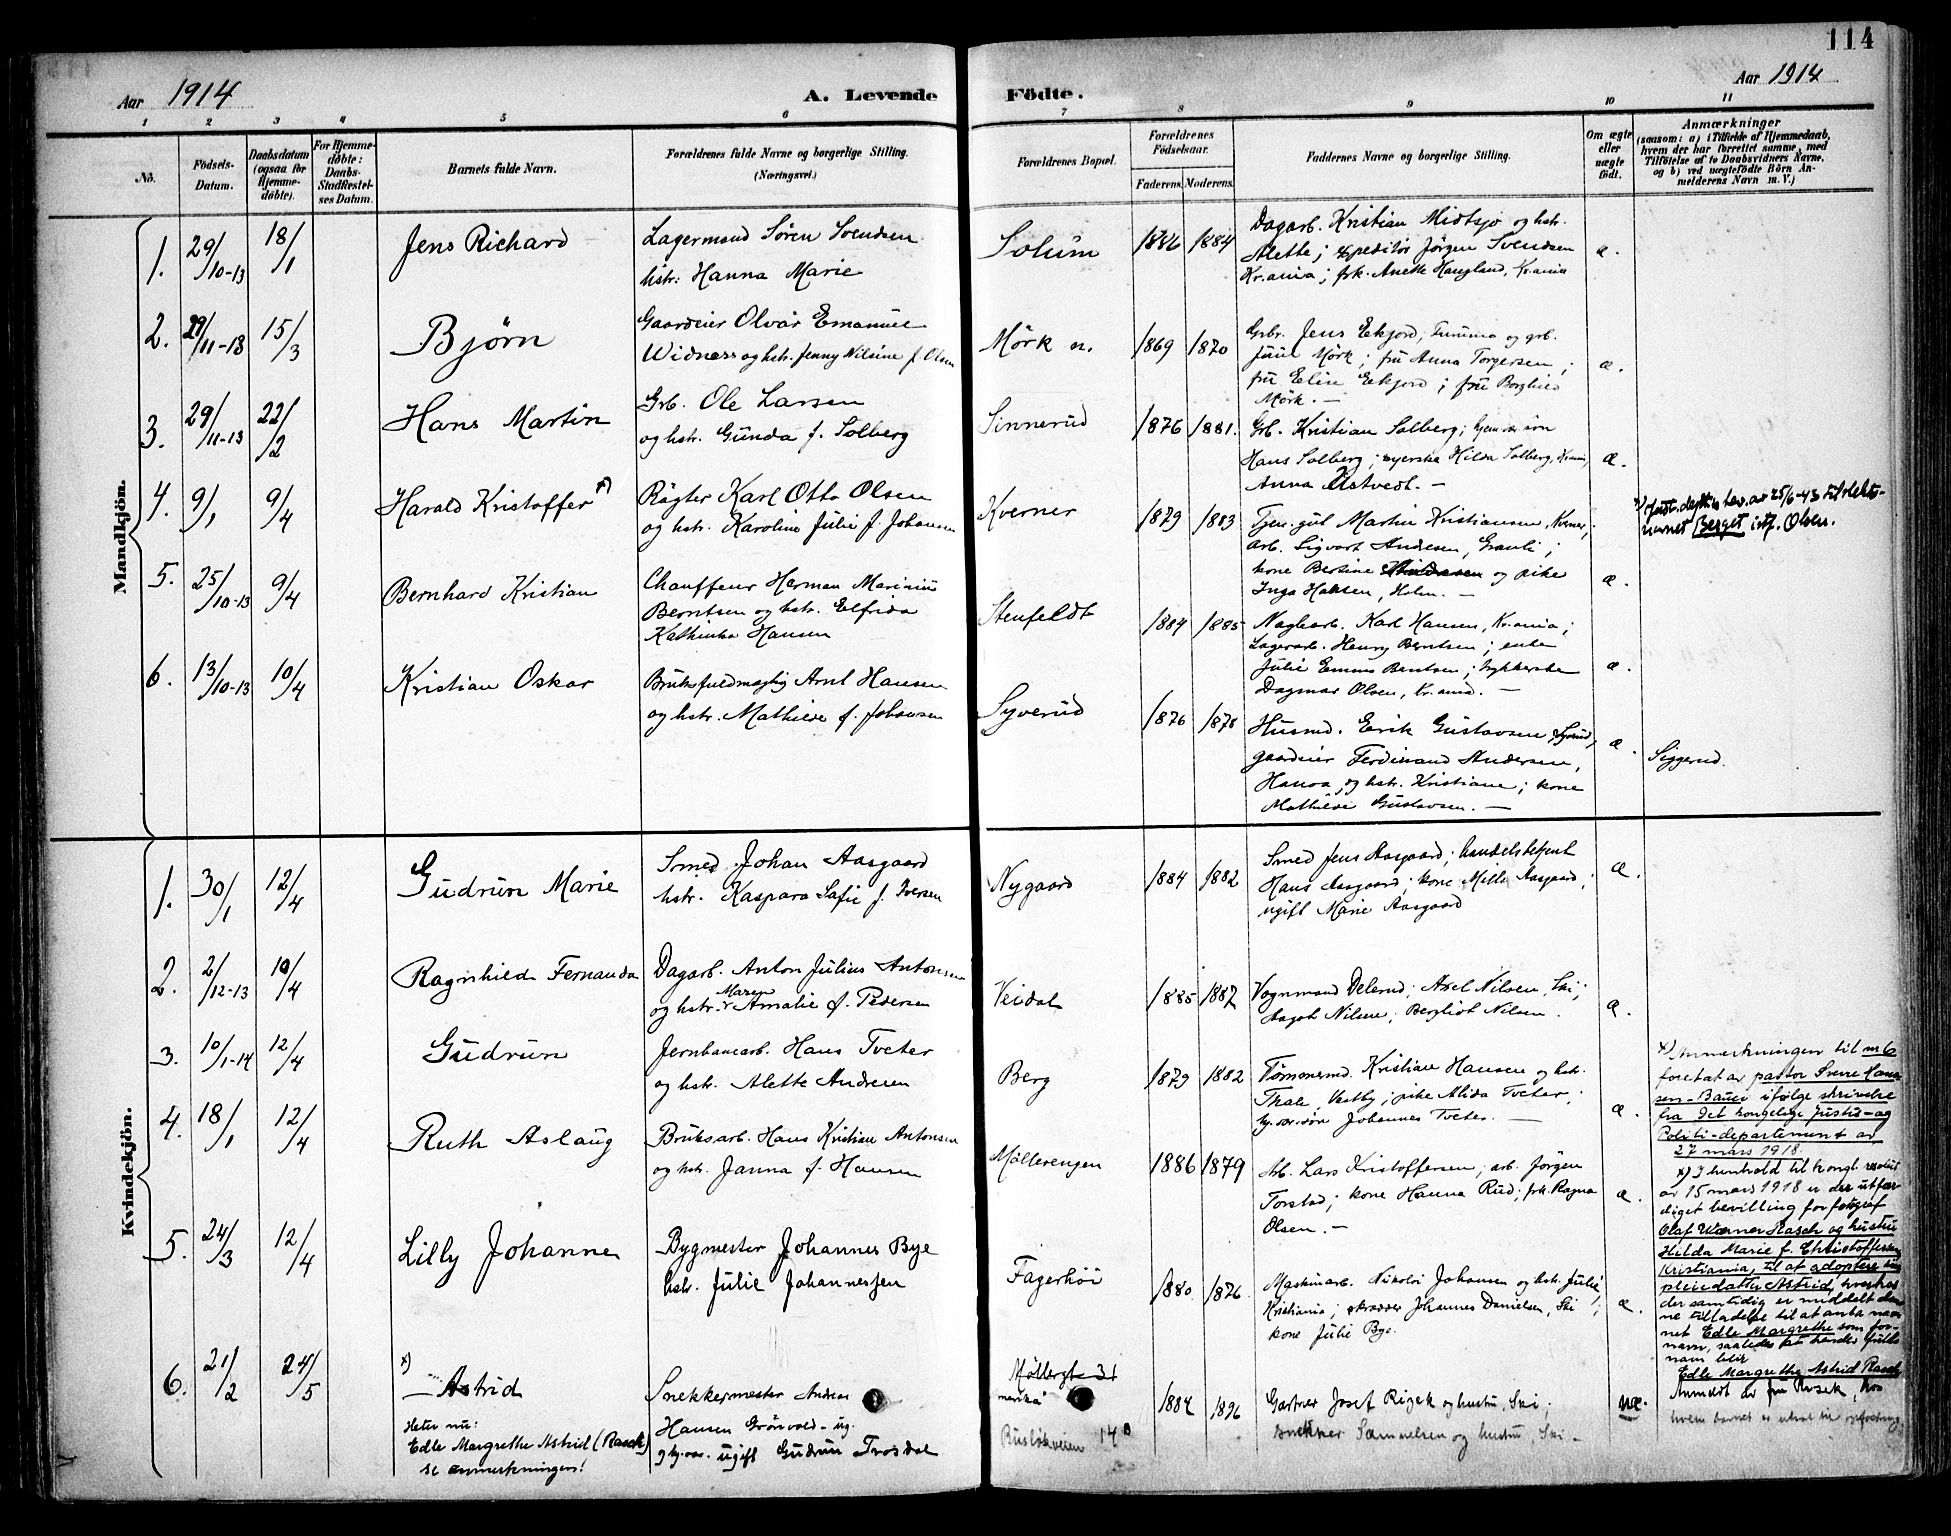 114
Aar 1914
A. Levende Födte.
Aar 1914
1 2 3 4 5 6 7 8 9 10 11
No.
Födsels-
Datum.
Daabsdatum
(ogsaa for
Hjemme-
döbte).
For Hjemme-
döbte:
Daabs-
Stadfæstel-
ses Datum.
Barnets fulde Navn.
Forældrenes fulde Navne og borgerlige Stilling.
(Næringsvei.)
Forældrenes Bopæl.
Forældrenes
Födselsaar.
Faderens. Moderens.
Faddernes Navne og borgerlige Stilling.
Om ægte
eller
uægte
født.
Anmærkninger
(saasom: a) i Tilfælde af Hjemmedaab,
hvem der har forrettet samme, med
Tilföielse af to Daabsvidners Navne,
og b) ved uægtefödte Börn An-
melderens Navn m. V.)
Mandkjön.
1. 29/10-13 18/1 Jens Richard
Lagermand Sören Svendsen
hstr. Hanna Marie
Solum 1886 1884
Dagarb. Kristian Midtsjø og hstr.
Alette; expeditör Jörgen Svendsen
Kr.ania; frk. Anette Haugland, Kr.ania
æ.
2. 29/11-13 15/3 Björn
Gaardeier Olvar Emanuel
Widness og hstr. Jenny Nilsine f. Olsen
Mörk n. 1869 1870
Grbr. Jens Eikjord, og grb.
Juul Mörk; fru Anna Torgersen;
fru Eline Eekjord; fru Borghild
Mörk. —
æ.
3. 29/11-13 22/2 Hans Martin
Grb. Ole Larsen
og hstr. Gunda f. Solberg
Sinnerud 1876 1881.
Grb. Kristian Solberg;
Hans Solberg; syerske Hilda Solberg, Kr.ania,
Anna Østvedt. —
æ.
4. 9/1 9/4 Harald Kristoffer x)
Røgter Karl Otto Olsen
og hstr. Karoline Julie f. Johansen
Kverner 1879 1883
Tjen.gut Martin Kristiansen, Kverner;
arb. Sigvart Andresen, Granli;
kone Bertine og pike
Inga Halsen, Holm. —
æ.
x) Just.dept.s bev. av 25/6-43 til slekts-
navnet Berget istf. Olsen.
5. 25/10-13 9/4 Bernhard Kristian
Chauffeur Herman Marinius
Berntsen og hstr. Elfrida
Kathinka Hansen
Stenfeldt 1884 1885
Karl Hansen, Kr.ania;
Lagerarb. Henry Berntsen; enke
Julie Emma Berntsen;
Dagmar Olsen, Kr.ania. —
æ.
6. 13/10-13 10/4 Kristian Oskar
Bruksfuldmægtig Arnt Hansen
og hstr. Mathilde f. Johansen
Syverud 1876 1878
Husmd. Erik Gustavsen, Syverud,
gaardeier Ferdinand Andersen,
og hstr. Kristiane; kone
Mathilde Gustavsen. —
æ.
Siggerud.
Kvindekjön.
1. 30/1 12/4 Gudrun Marie
Smed Johan Aasgaard
hstr. Kaspara Sofie f. Iversen
Nygaard 1884 1882
Smed Jens Aasgaard; handelsbetjent
Hans Aasgaard; kone Milli Aasgaard;
ugift Marie Aasgaard
æ.
2. 2/12-13 10/4 Ragnhild Fernanda
Dagarb. Anton Julius Antonsen
og hstr. Maren Amalie f. Pedersen
Veidal 1885 1887
Vognmand Delerud; Axel Nilsen, Ski;
Aagot Nilsen; Bergliot Nilsen.
æ.
3. 10/1-14 12/4 Gudrun
Jernbanearb. Hans Tveter
og hstr. Alette Andresen
Berg 1879 1882
Tömmermd. Kristian Hansen og hstr.
Thale, Vestby; pike Alida Tveter;
Johannes Tveter. —
æ.
4. 18/1 12/4 Ruth Aslaug
Bruksarb. Hans Kristian Antonsen
og hstr. Janna f. Hansen
Möllerengen 1886 1879
Arb. Lars Kristoffersen; arb. Jörgen
Torstad; kone Hanna Rud; frk. Ragna
Olsen. —
æ.
5. 24/3 12/4 Lilly Johanne
Bygmester Johannes Bye
hstr. Julie Johannessen
Fagerhöi 1880 1876
Maskinarb. Nikolai Johansen og hstr. Julie
Kristiania; skrædder Johannes Danielsen, Ski;
kone Julie Bye.
æ.
6. 21/2 24/5 x) Astrid
Heter nu:
Edle Margrethe Astrid (Rasch)
se anmerkningen!
Snekkermester Andreas
Hansen Grönvold - ug.
ugift Gudrun Trosdal
Møllergt 31
Rusløkveien 14 B
1884 1896
Gartner Josef Rizek og hustru, Ski.
snekker Samuelsen og hustru, Ski —
uæ.
x) Anmerkningen til nr 6
foretat av pastor Sverre Han-
sen-Bauer ifølge skrivelse
fra Det kongelige Justis- og
Politi-departement av
27 mars 1918.
x) I henhold til kongl. resolut.
av 15 mars 1918 er der utfær-
diget bevilling for fotograf
Olaf Werner Rasch og hustru
Hilda Marie f. Christoffersen,
Kristiania, til at adoptere sin
pleiedatter Astrid, hvorhos
der samtidig er meddelt den-
ne tilladelse til at anta nav-
net Edle Margrethe som for-
navn, saaledes at hendes fulde
navn blir
Edle Margrethe Astrid Rasch
Anmeldt av fru Rizek, hos
hvem barnet er utsat til opfostring